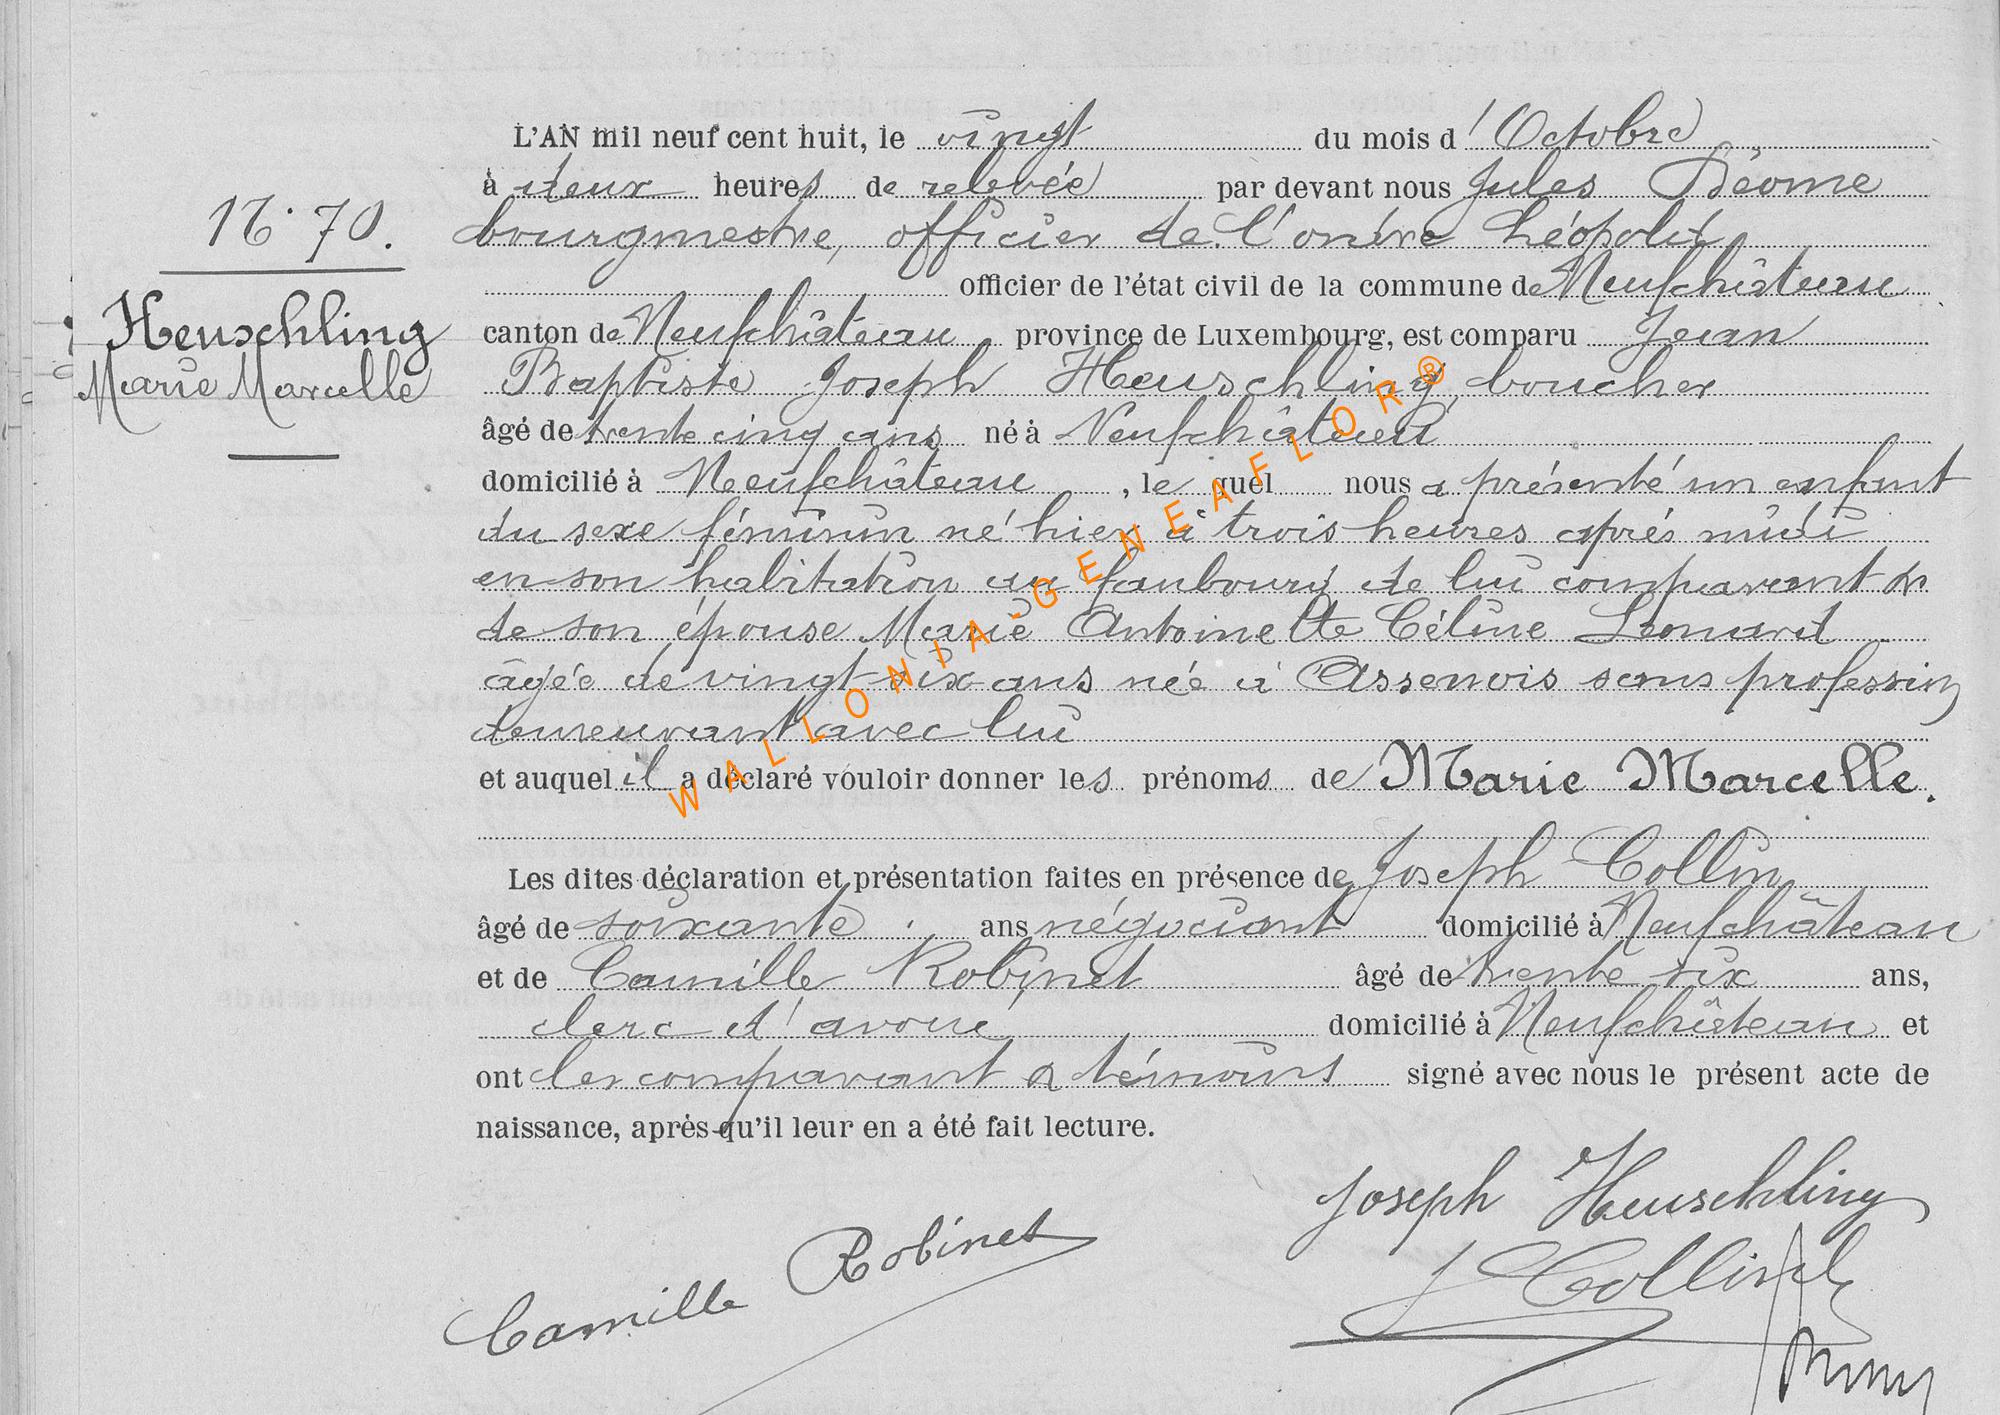 L'AN mil neuf cent huit, le vingt du mois d'Octobre
à deux heures de relevée par devant nous Jules Déome
N° 70.
bourgmestre, officier de l'ordre Léopold
officier de l'état civil de la commune de Neufchâteau
Heuschling
canton de Neufchâteau province de Luxembourg, est comparu Jean
Marie Marcelle
Baptiste Joseph Heuschling, boucher
âgé de trente cinq ans né à Neufchâteau
domicilié à Neufchâteau, le quel nous a présenté un enfant
du sexe féminin né hier à trois heures après midi
en son habitation au faubourg de lui comparant &
de son épouse Marie Antoinette Céline Léonard
âgée de vingt six ans née à Assenois sans profession
demeurant avec lui
et auquel il a déclaré vouloir donner les prénoms de Marie Marcelle.
Les dites déclaration et présentation faites en présence de Joseph Collin
âgé de soixante ans négociant domicilié à Neufchâteau
et de Camille Robinet âgé de trente six ans,
clerc d'avoué domicilié à Neufchâteau et
ont les comparant & témoins signé avec nous le présent acte de
naissance, après qu'il leur en a été fait lecture.
Joseph Heuschling
Camille Robinet
J Collin
WALLONIA-GENEAFLOR®